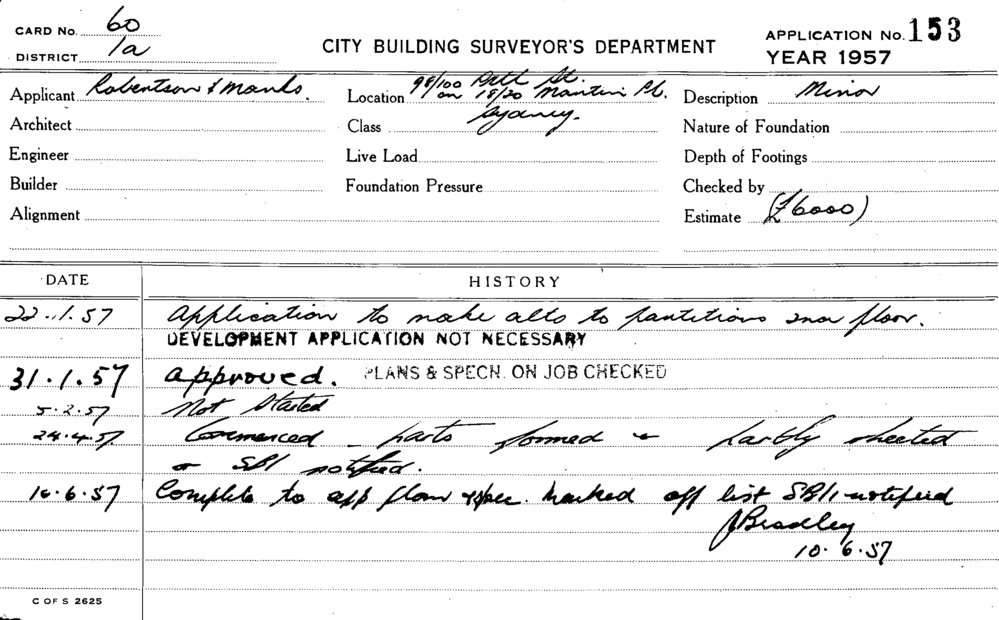 CARD No. 60
DISTRICT 1a
CITY BUILDING SURVEYOR'S DEPARTMENT
APPLICATION No. 153
YEAR 1957
Applicant Robertson & Marks.
Location 98/100 Pitt St.
on 18/20 Martin Pl.
Description Minor
Architect
Class Sydney.
Nature of Foundation
Engineer
Live Load
Depth of Footings
Builder
Foundation Pressure
Checked by
Alignment
Estimate (£6000)
DATE
HISTORY
22.1.57 Application to make alts to partitions 2nd floor.
DEVELOPMENT APPLICATION NOT NECESSARY
31.1.57 approved. PLANS & SPECN. ON JOB CHECKED
5.2.57 Not Started
24.4.57 Commenced - parts formed & partly sheeted
SB1 notified.
10.6.57 Complete to app plan & spec. Marked off list SB1 notified
J Bradley
10.6.57
C OF S 2625